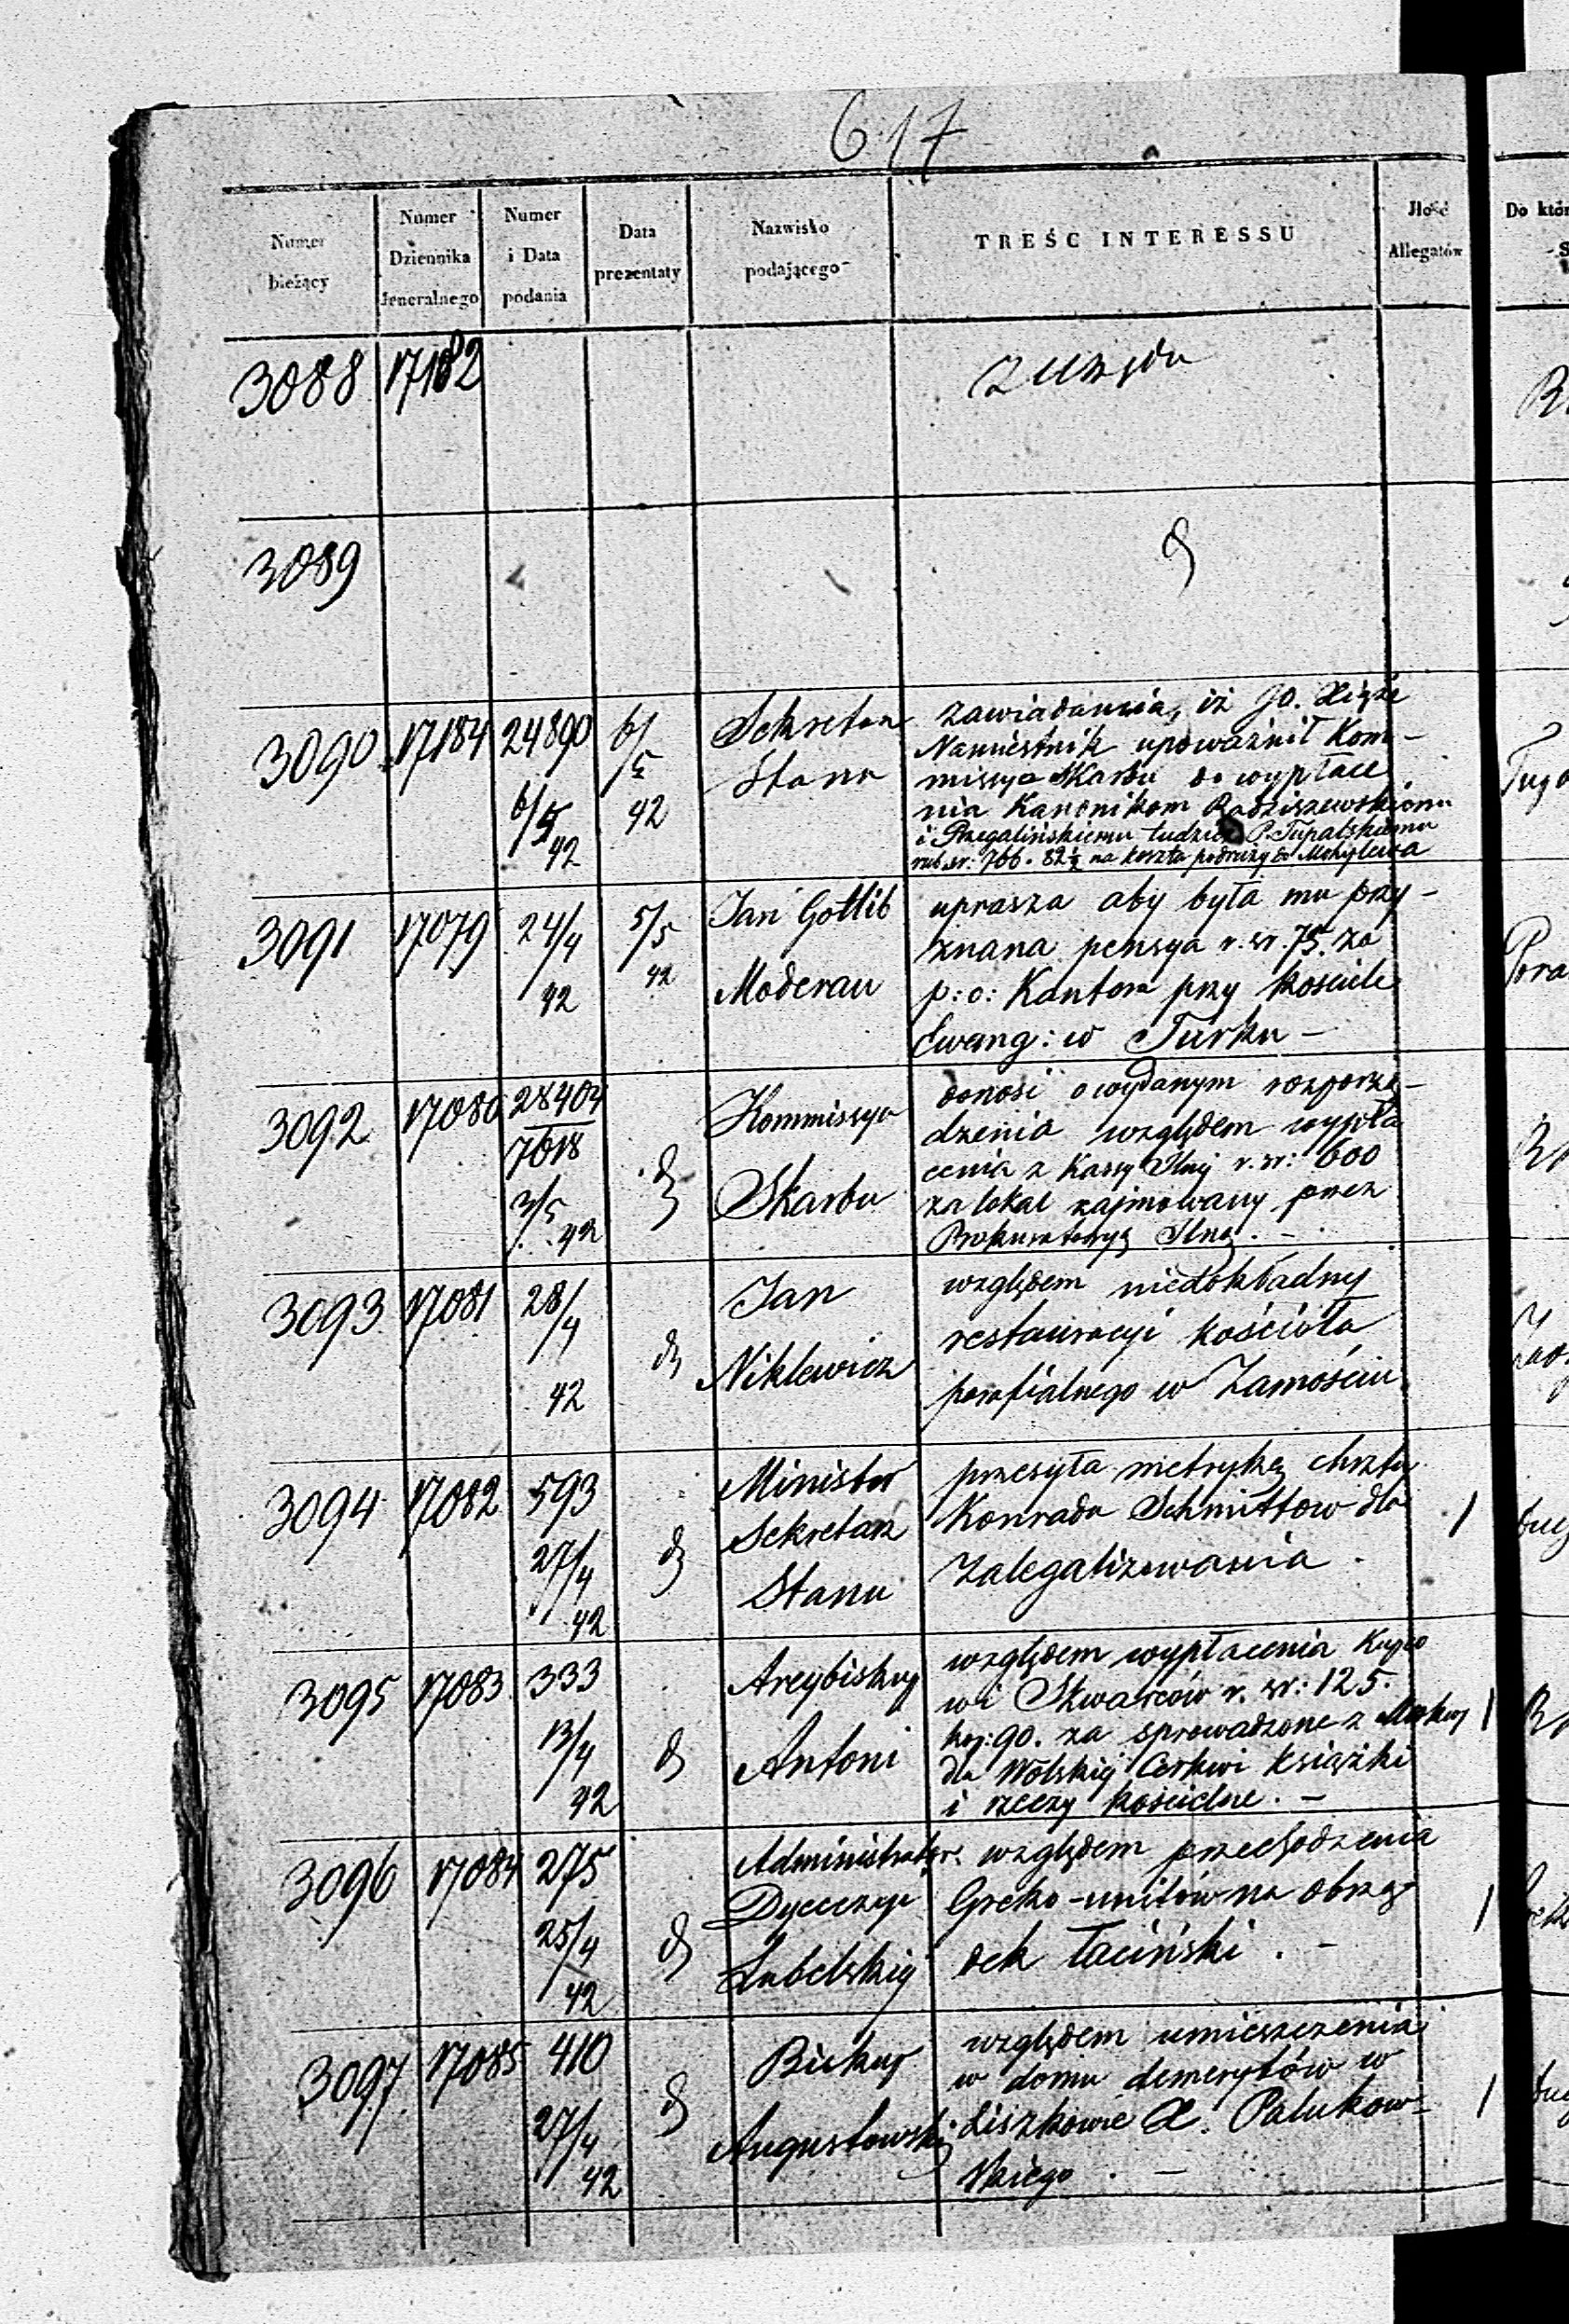 617
Numer bieżący
Numer Dziennika Jeneralnego
Numer i Data podania
Data prezentaty
Nazwisko podającego
TREŚC INTERESSU
Jlość Allegatów
3088 17182
z urzędu
3089
3090 17184 24890 6/5 42 6/5 42
Sekretarz
Stanu
zawiadamia, iż JO. Xiąże
Namiestnik upoważnił Kom-
missya Skarbu do wypłace
nia Kanonikom Radziszewskiemu
i Przegalińskiemu tudzież P. Tupalskiemu
rub. sr: 766. 82½ na koszta podróży do Mohylewa
3091 17079 24/4 42 5/5 42
Jan Gottlib
Moderau
uprasza aby była mu przy-
znana pensya r. sr. 75. za
p: o: Kantora przy kosciele
Ewang: w Turku -
3092 17080 28404/7618 3/5 42
Kommissya
Skarbu
donosi o wydanym rozporzą-
dzenia względem wypła
cenia z Kassy Głnej r. sr: 600
za lokal zajmowany przez
Prokuratoryą . -
3093 17081 28/4 42
Jan
Niklewicz
względem niedokładnej
restauracyi kościoła
parafialnego w Zamościu
3094 17082 593 27/4 42
Minister
Sekretarz
Stanu
przesyła metrykę chrztu
Konrada Schmittow dla
zalegalizowania .
1
3095 17083 333 13/4 42
Arcybiskup
Antoni
względem wypłacenia Kupco
wi Skwarców r. sr: 125.
kop: 90. za sprowadzone z Moskwy
dla Wolskiej Cerkwi książki
i rzeczy kościelne. -
1
3096 17084 275 25/4 42
Administrator
Dyecezyi
Lubelskiej
względem przechodzenia
Greko-unitów na obrzą
dek łaciński . -
1
3097 17085 410 27/4 42
Biskup
Augustowski
względem umieszczenia
w domu demerytów w
Liszkowie X. Palukow-
skiego . -
1